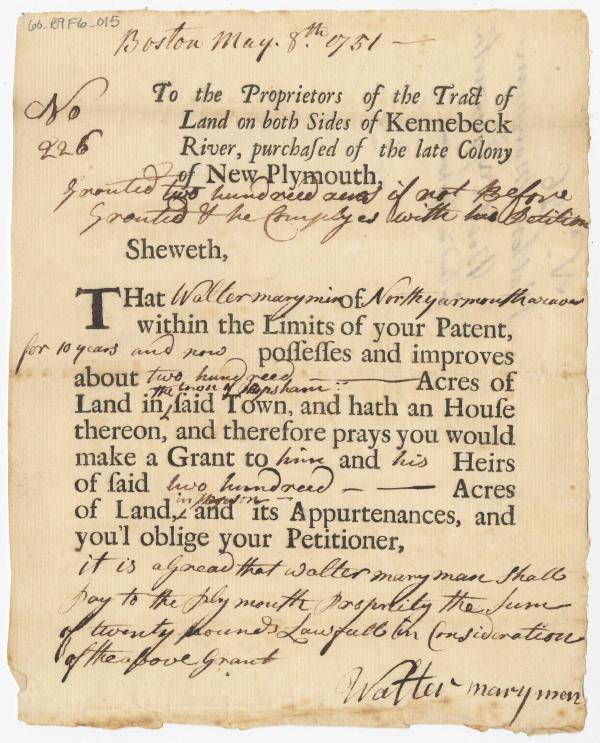 66.B9F6_015
Boston May. 8.th 1751 —
No
226
To the Proprietors of the Tract of
Land on both Sides of Kennebeck
River, purchaſed of the late Colony
of New Plymouth,
Granted two hundreed if not Before
Granted & he Complyes with his Petition
Sheweth,
THat Walter marymin of Northyarmouth weaver
within the Limits of your Patent,
for 10 years and now poſſeſſes and improves
about two hundreed — Acres of
the town of Topsham
Land in ſaid Town, and hath an Houſe
thereon, and therefore prays you would
make a Grant to him and his Heirs
of ſaid two hundreed — — Acres
of Land, and its Appurtenances, and
you'l oblige your Petitioner,
it is aGread that walter maryman shall
Pay to the plymouth the Sum
of twenty pounds Lawfull in Consideration
of the above Grant
Walter marymen